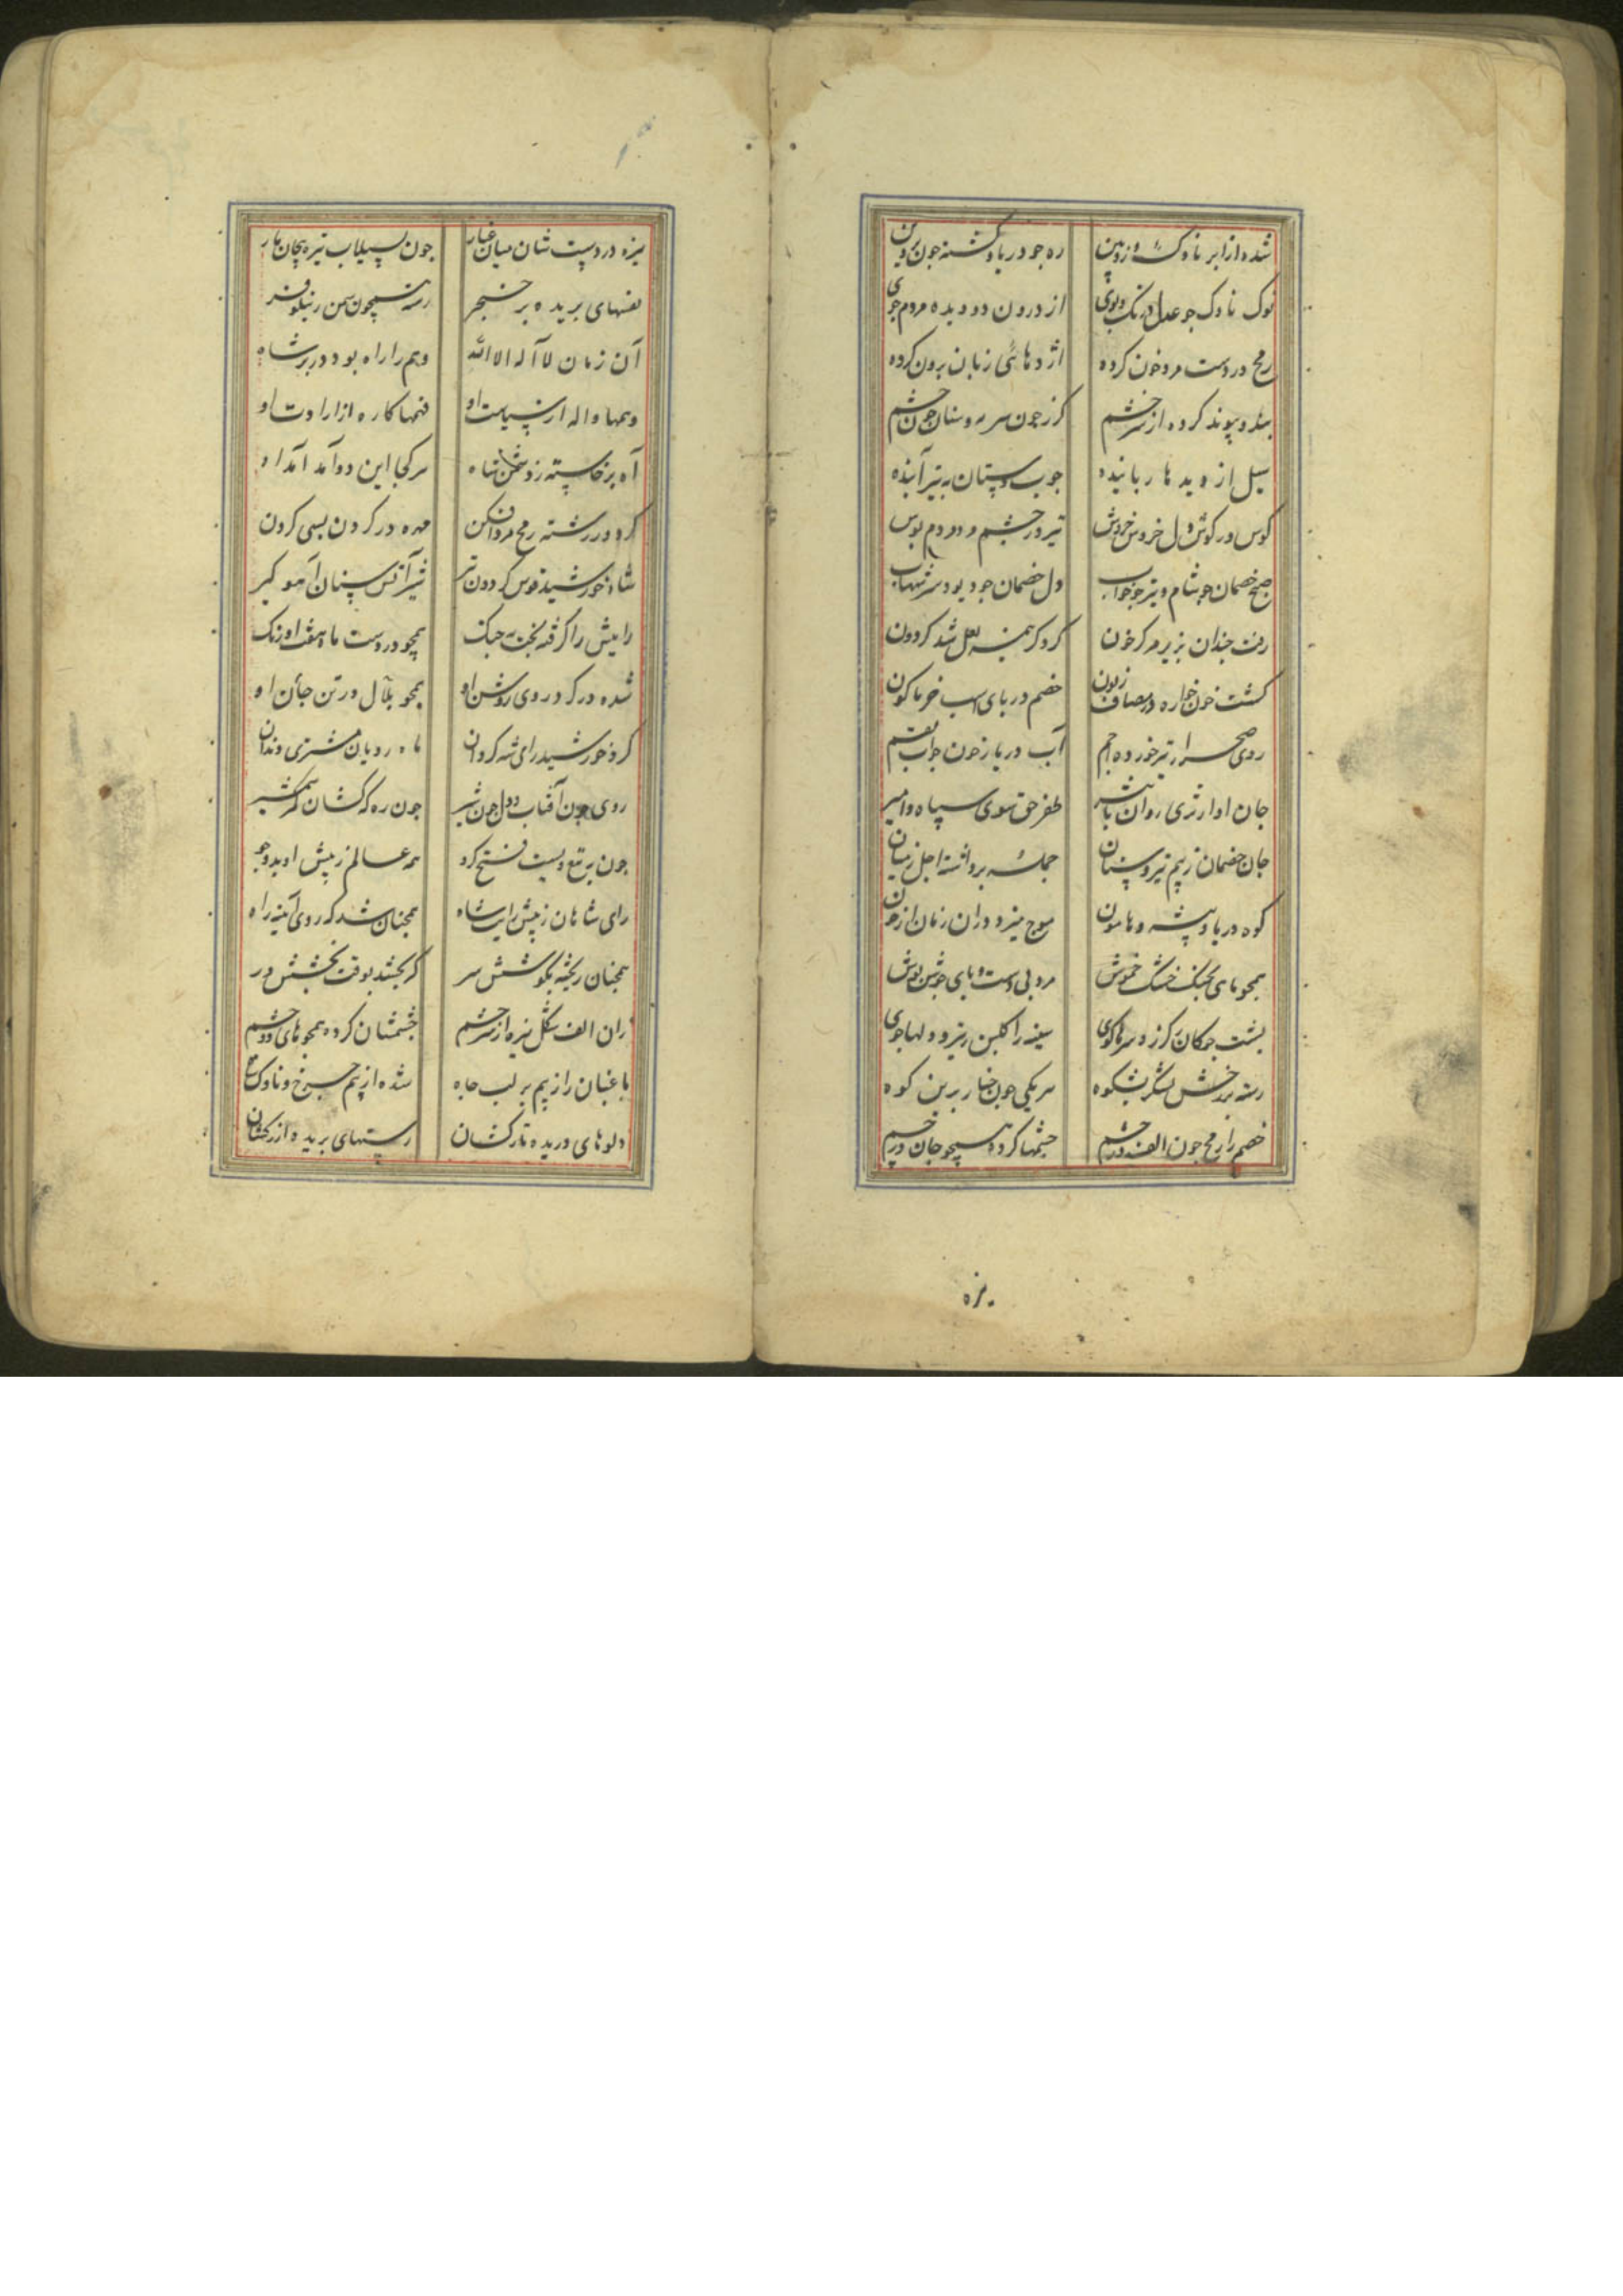 شده از ابر ناوک و زوبین ره جو دریا و کشته جون پروین
نوک ناوک جو عدل در تک و پوی از درون دو دیده مردم جوی
رمح در دست مرد خون کرده اژدهائی زبان برون کرده
پیوند کرده از سر خشم کرز جون سرمه و سنان جون چشم
سیل از دیدها رباینده جوب دستان به تیر آینده
کوس در کوش دل خروش خروش تیر در چشم مردم بوس
صبح خصمان جو شام و تیر جو خواب دل خصمان جو دیو و سر شهاب
رفت جندان بزیر مرکز خون کرد کز همه لعل شد کردون
کشت خون خواره در مصاف زبون خصم در بای اسب خرما کون
روی صحرا آب دریا ز خون جو آب بقم
جان او از ثری روان باثیر ظفر حق سوی سپاه و امیر
جان خصمان ز بیم تیر و سنان جمله برداشته اجل ز میان
کوه و دریا و بیشه و هامون موج میزد دران زمان از خون
همجو مای بجنک خشک خموش مرد بی دست و بای جوشن بوش
بشت جوکان کرز و سرها کوی سینه را کلبن ریز و دلها جوی
رسته بر رخش لشکر بشکوه هر یکی جون خیار بر بن کوه
خصم را رمح جون الف در چشم جشمها کرده همجو جان در جسم
نیزه
نیزه در دست شان میان غبار جون بسیلاب تیره بیجان مار
نفسهای بریده بر خنجر رسته همچون سمن ز نیلوفر
آن زمان لا آله الا الله وهم را راه بود در بر شاه
وهمها واله از سیاست او فهمها کاره از ارادت او
آه برخاسته ز دشمن شاه هر کجا این دو آمد آمد او
کرد در رشته رمح مرد افکن مهره در کردن بسی کردن
شاه خورشید قوس کردون تیر شیر آتش سنان آهو کیر
رایتش را کرفته بخت به جنک همچو در دست ماه هفت اورنک
شده در کرد روی روشن او همجو بلال در تن جان او
کرد خورشید رای شه کردان ماه رویان مشتری دندان
روی جون آفتاب و دل جون شیر جون ره کهکشان کمر شمشیر
جون بر تیغ دست فتح کرد همه عالم ز پیش او
رای شاهان ز پیش رایت شاه همجنان شد که روی آینه راه
همجنان ریخته بکوشش سر که ببخشد بوقت بخشش زر
زان الف شکل نیزه از سر خشم خشمشان کرده همجو های دو چشم
باغیان را ز بیم بر لب جاه شده از بیم جرخ و ناوک
دلوهای دریده تارکشان رسنهای بریده از رکشان